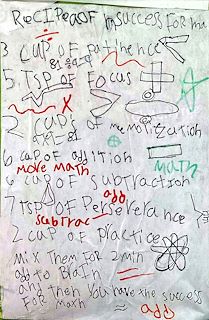 RecIPeaOF Insuccess For ma
÷
3 CUP OF patihence
5 TSP OF Focus
X
2 CUP'S OF memotization
6 cup of addition
more math
MATH
6 CUP OF subtraction
add
7 TSP OF Perseverance
subtrac
2 cup of practice
Mix Them FOR 2 min
add to Brain
and then You have the success
FOR math
= add